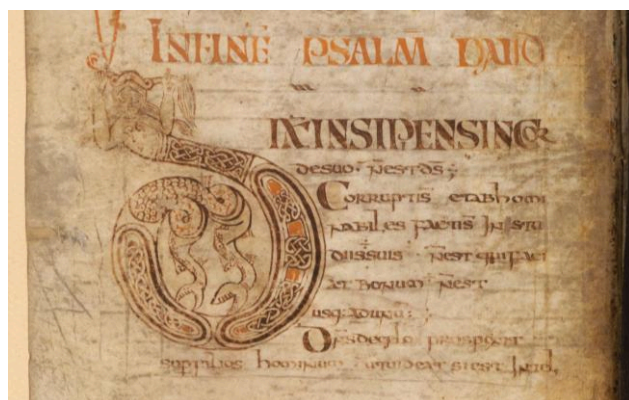 IN FINE PSALM DAUID
DIX INSIPIENS IN COR
DE SUO · NEST DS
Corruptis et abhomi
nabiles factis In stu
diis suis · nest qui faci
at bonum nest
usq ad unu
Ds de celo prospexit
sup filios hominum ut uideat si est